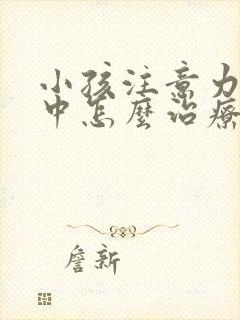 小孩注意力
中怎麼治療
詹新